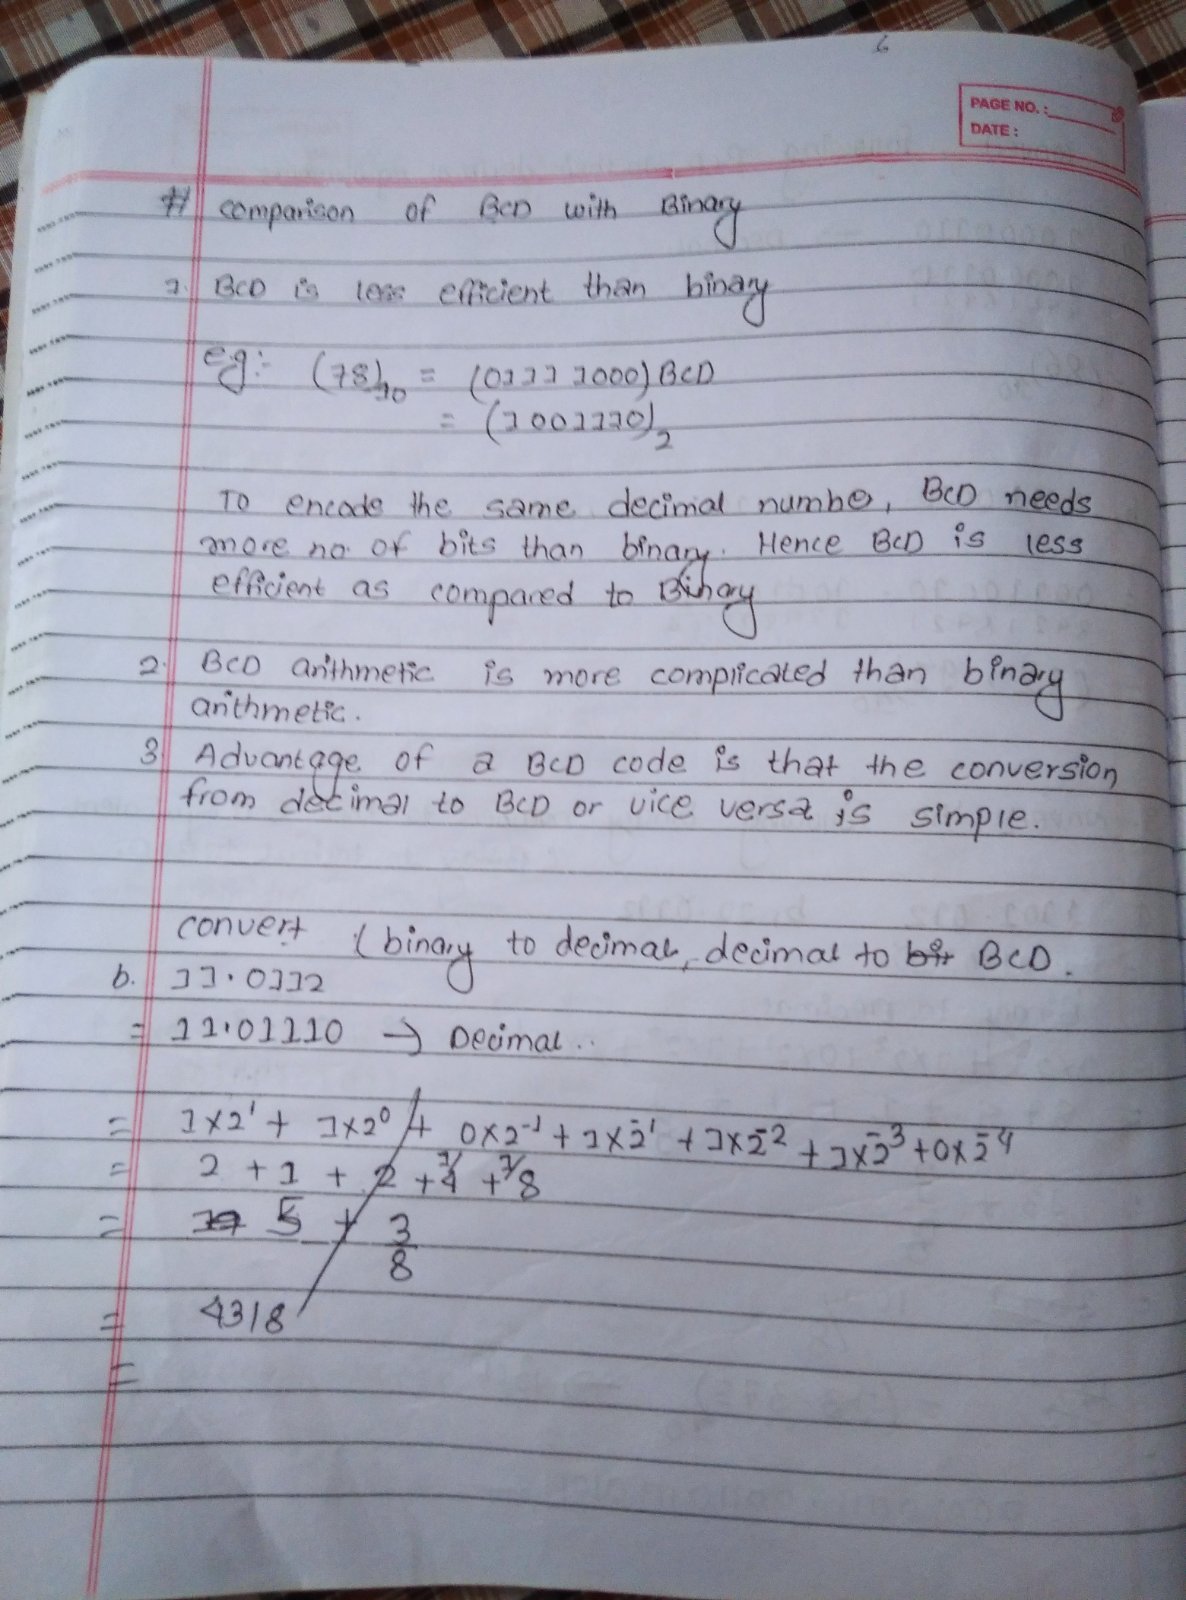 6
PAGE NO.:
DATE:
# Comparison of BCD with Binary
1. BCD is less efficient than binary
eg:- (78)10 = (0111 1000) BCD
= (1001110)2
To encode the same decimal numbe, BCD needs
more no. of bits than binary. Hence BCD is less
efficient as compared to Binary
2. BCD arithmetic is more complicated than binary
arithmetic.
3 Advantage of a BCD code is that the conversion
from decimal to BCD or vice versa is simple.
convert (binary to decimal, decimal to bit BCD.
b. 11.0112
= 11.01110 → Decimal..
= 1×2¹ + 1×2⁰ + 0×2⁻¹ + 1×2⁻¹ + 1×2⁻² + 1×2⁻³ + 0×2⁻⁴
= 2 + 1 + 2 + 1/4 + 1/8
= 5 + 3/8
= 43/8
=